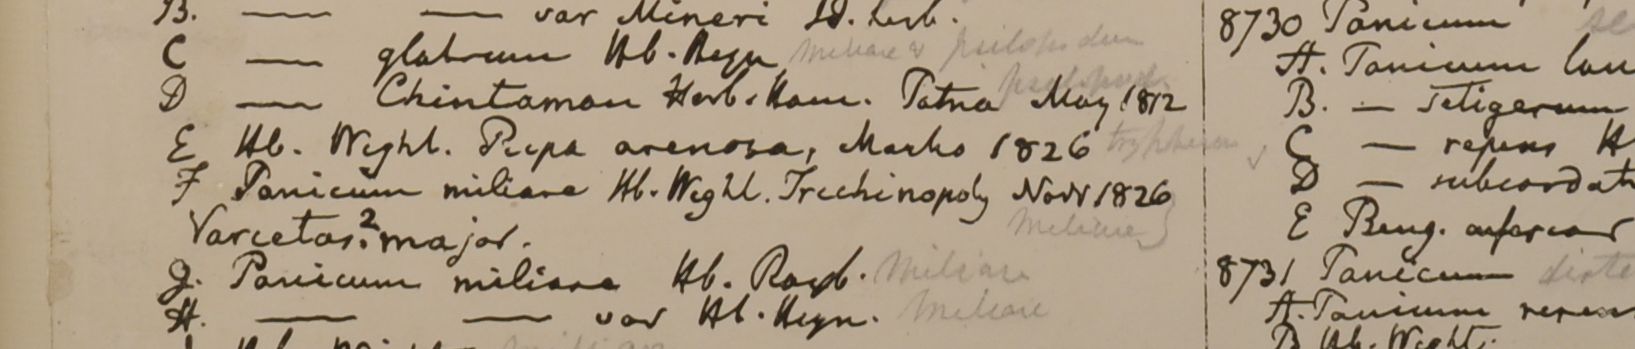 B. — — var Mineri Id. herb.
C — glabrum Hb. Heyn miliare psilopodium
D — Chintaman Herb. Ham. Patna May 1812
E Hb. Wight. Peepa arenosa, Marho 1826 trypheron
F Panicum miliare Hb. Wight. Trichinopoly Novr 1826
Varietas. 2 major. miliare
G. Panicum miliare Hb. Roxb. miliare
H. — — var Hb. Heyn. miliare
8730 Panicum
A. Panicum
B. — setigerum
C — repens H
D — subcordat
E Beng. inferior
8731 Panicum
A. Panicum repens
B Hb. Wight.